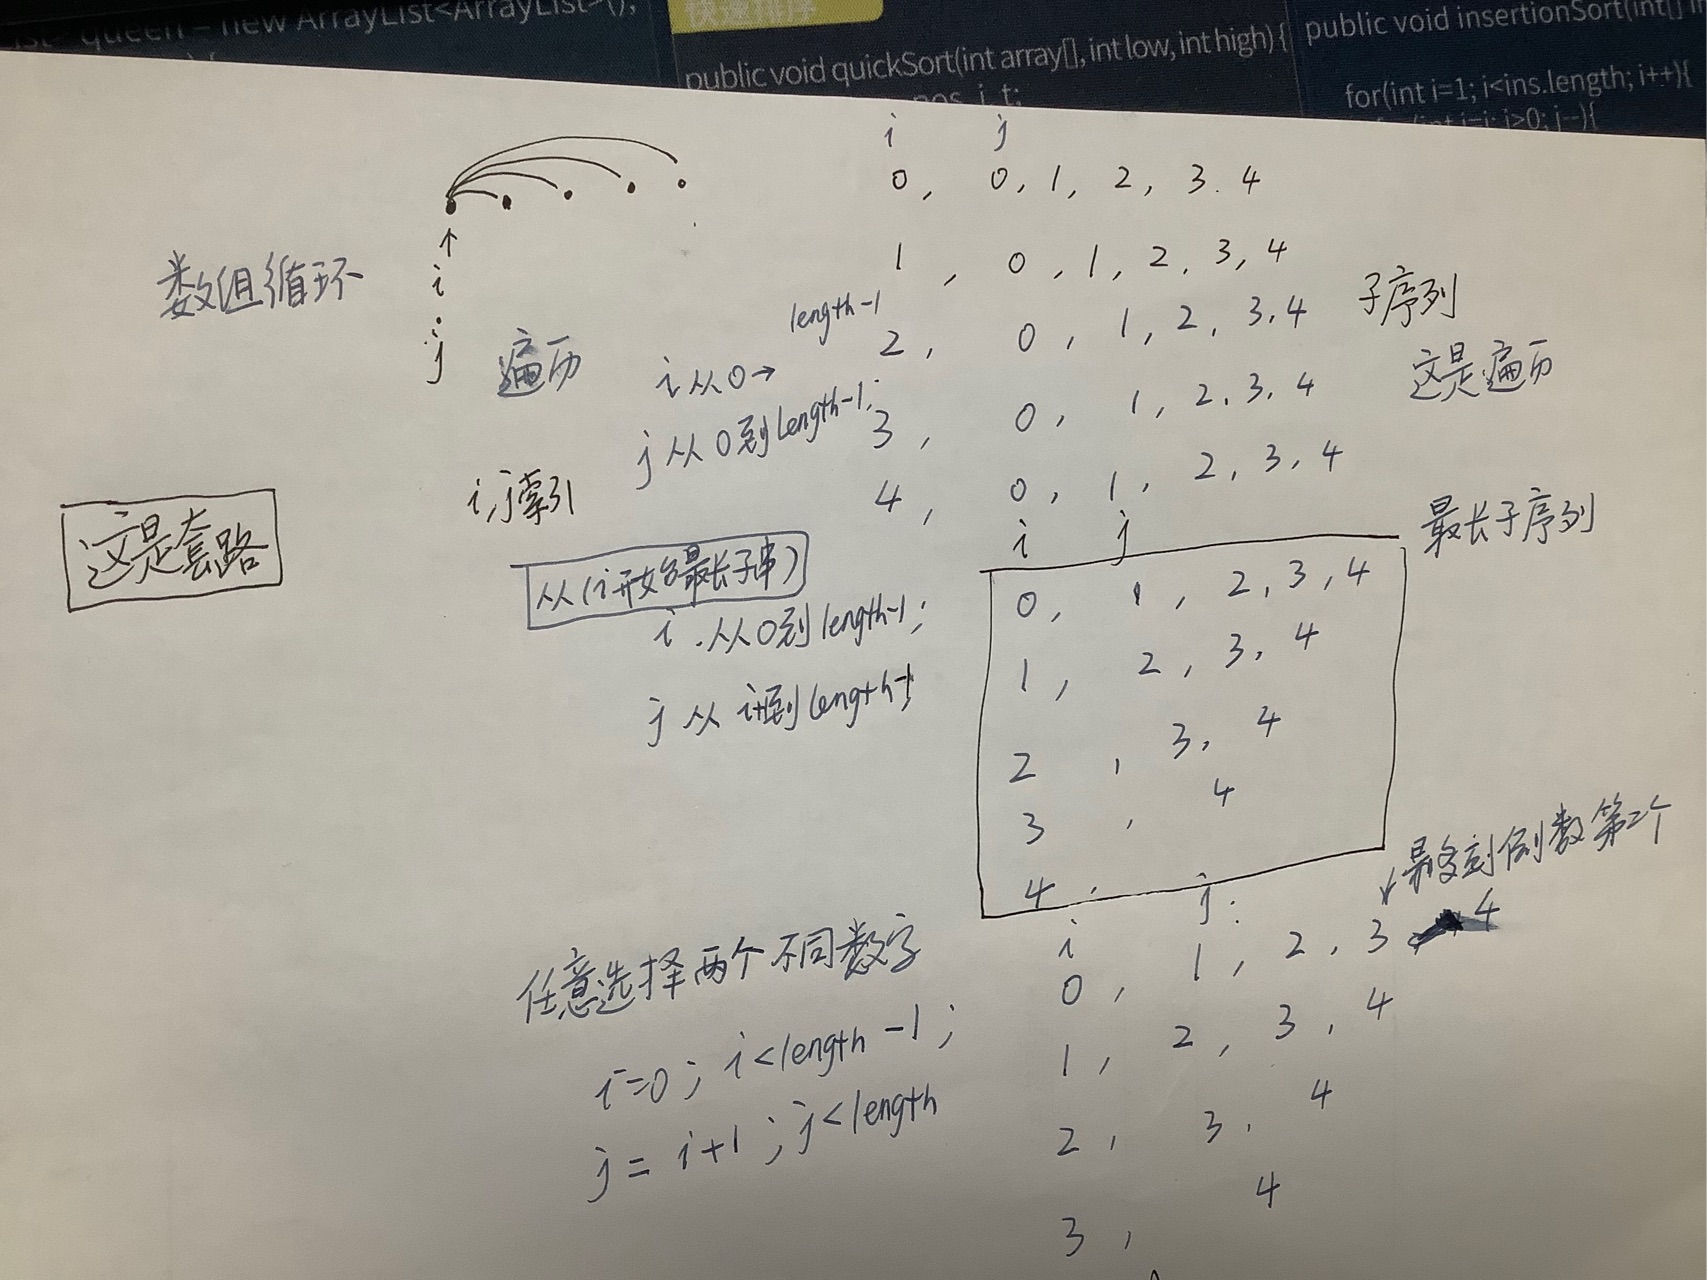 queen = new ArrayList<ArrayList>();
快速排序
public void quickSort(int array[], int low, int high) {
pos, i, t;
public void insertionSort(int[] i
for(int i=1; i<ins.length; i++){
i>0; j--){
数组循环
i
j
遍历
i 从 0 →
length-1
j 从 0 到 length-1;
i, j 索引
i j
0, 0, 1, 2, 3. 4
1, 0, 1, 2, 3, 4
2, 0, 1, 2, 3, 4
3, 0, 1, 2, 3, 4
4, 0, 1, 2, 3, 4
子序列
这是遍历
这是套路
从(i开始最长子串)
i 从 0 到 length-1;
j 从 i+1到 length-1
最长子序列
i j
0, 1, 2, 3, 4
1, 2, 3, 4
2, 3, 4
3, 4
4,
任意选择两个不同数字
i=0; i<length-1;
j = i+1; j<length
倒数第二个
i j:
0, 1, 2, 3 4
1, 2, 3, 4
2, 3, 4
3, 4